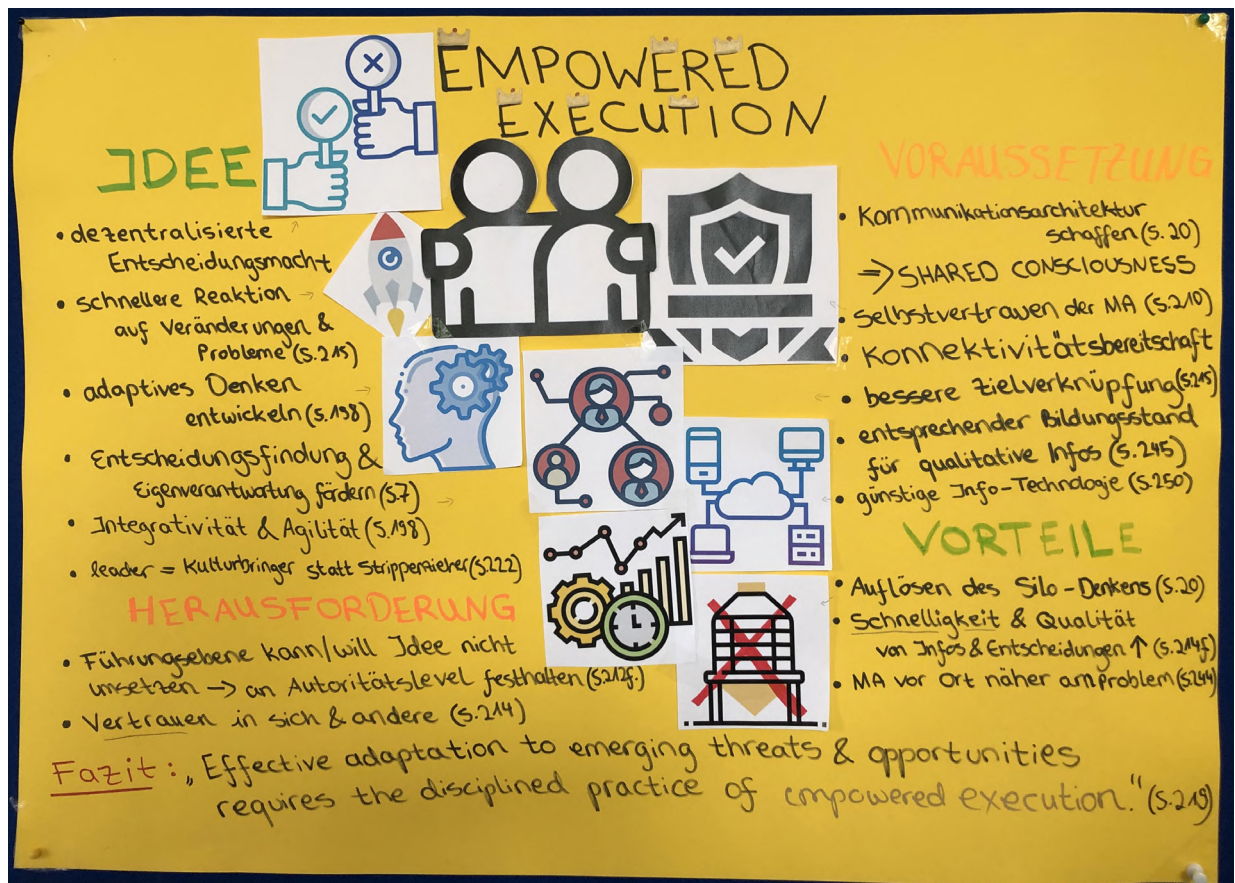 EMPOWERED
EXECUTION
IDEE
• dezentralisierte
Entscheidungsmacht
• schnellere Reaktion
auf Veränderungen &
Probleme (S.215)
• adaptives Denken
entwickeln (S.198)
• Entscheidungsfindung &
Eigenverantwortung fördern (S.7)
• Integrativität & Agilität (S.198)
• leader = Kulturbringer statt Strippenzieher (S.222)
HERAUSFORDERUNG
• Führungsebene kann/will Idee nicht
umsetzen → an Autoritätslevel festhalten (S.212f.)
• Vertrauen in sich & andere (S.214)
VORAUSSETZUNG
• Kommunikationsarchitektur
schaffen (S.20)
⇒ SHARED CONSCIOUSNESS
• Selbstvertrauen der MA (S.210)
• Konnektivitätsbereitschaft
• bessere Zielverknüpfung (S.215)
• entsprechender Bildungsstand
für qualitative Infos (S.245)
• günstige Info-Technologie (S.250)
VORTEILE
• Auflösen des Silo-Denkens (S.20)
• Schnelligkeit & Qualität
von Infos & Entscheidungen ↑ (S.214f)
• MA vor Ort näher am Problem (S.244)
Fazit: „Effective adaptation to emerging threats & opportunities
requires the disciplined practice of empowered execution." (S.219)